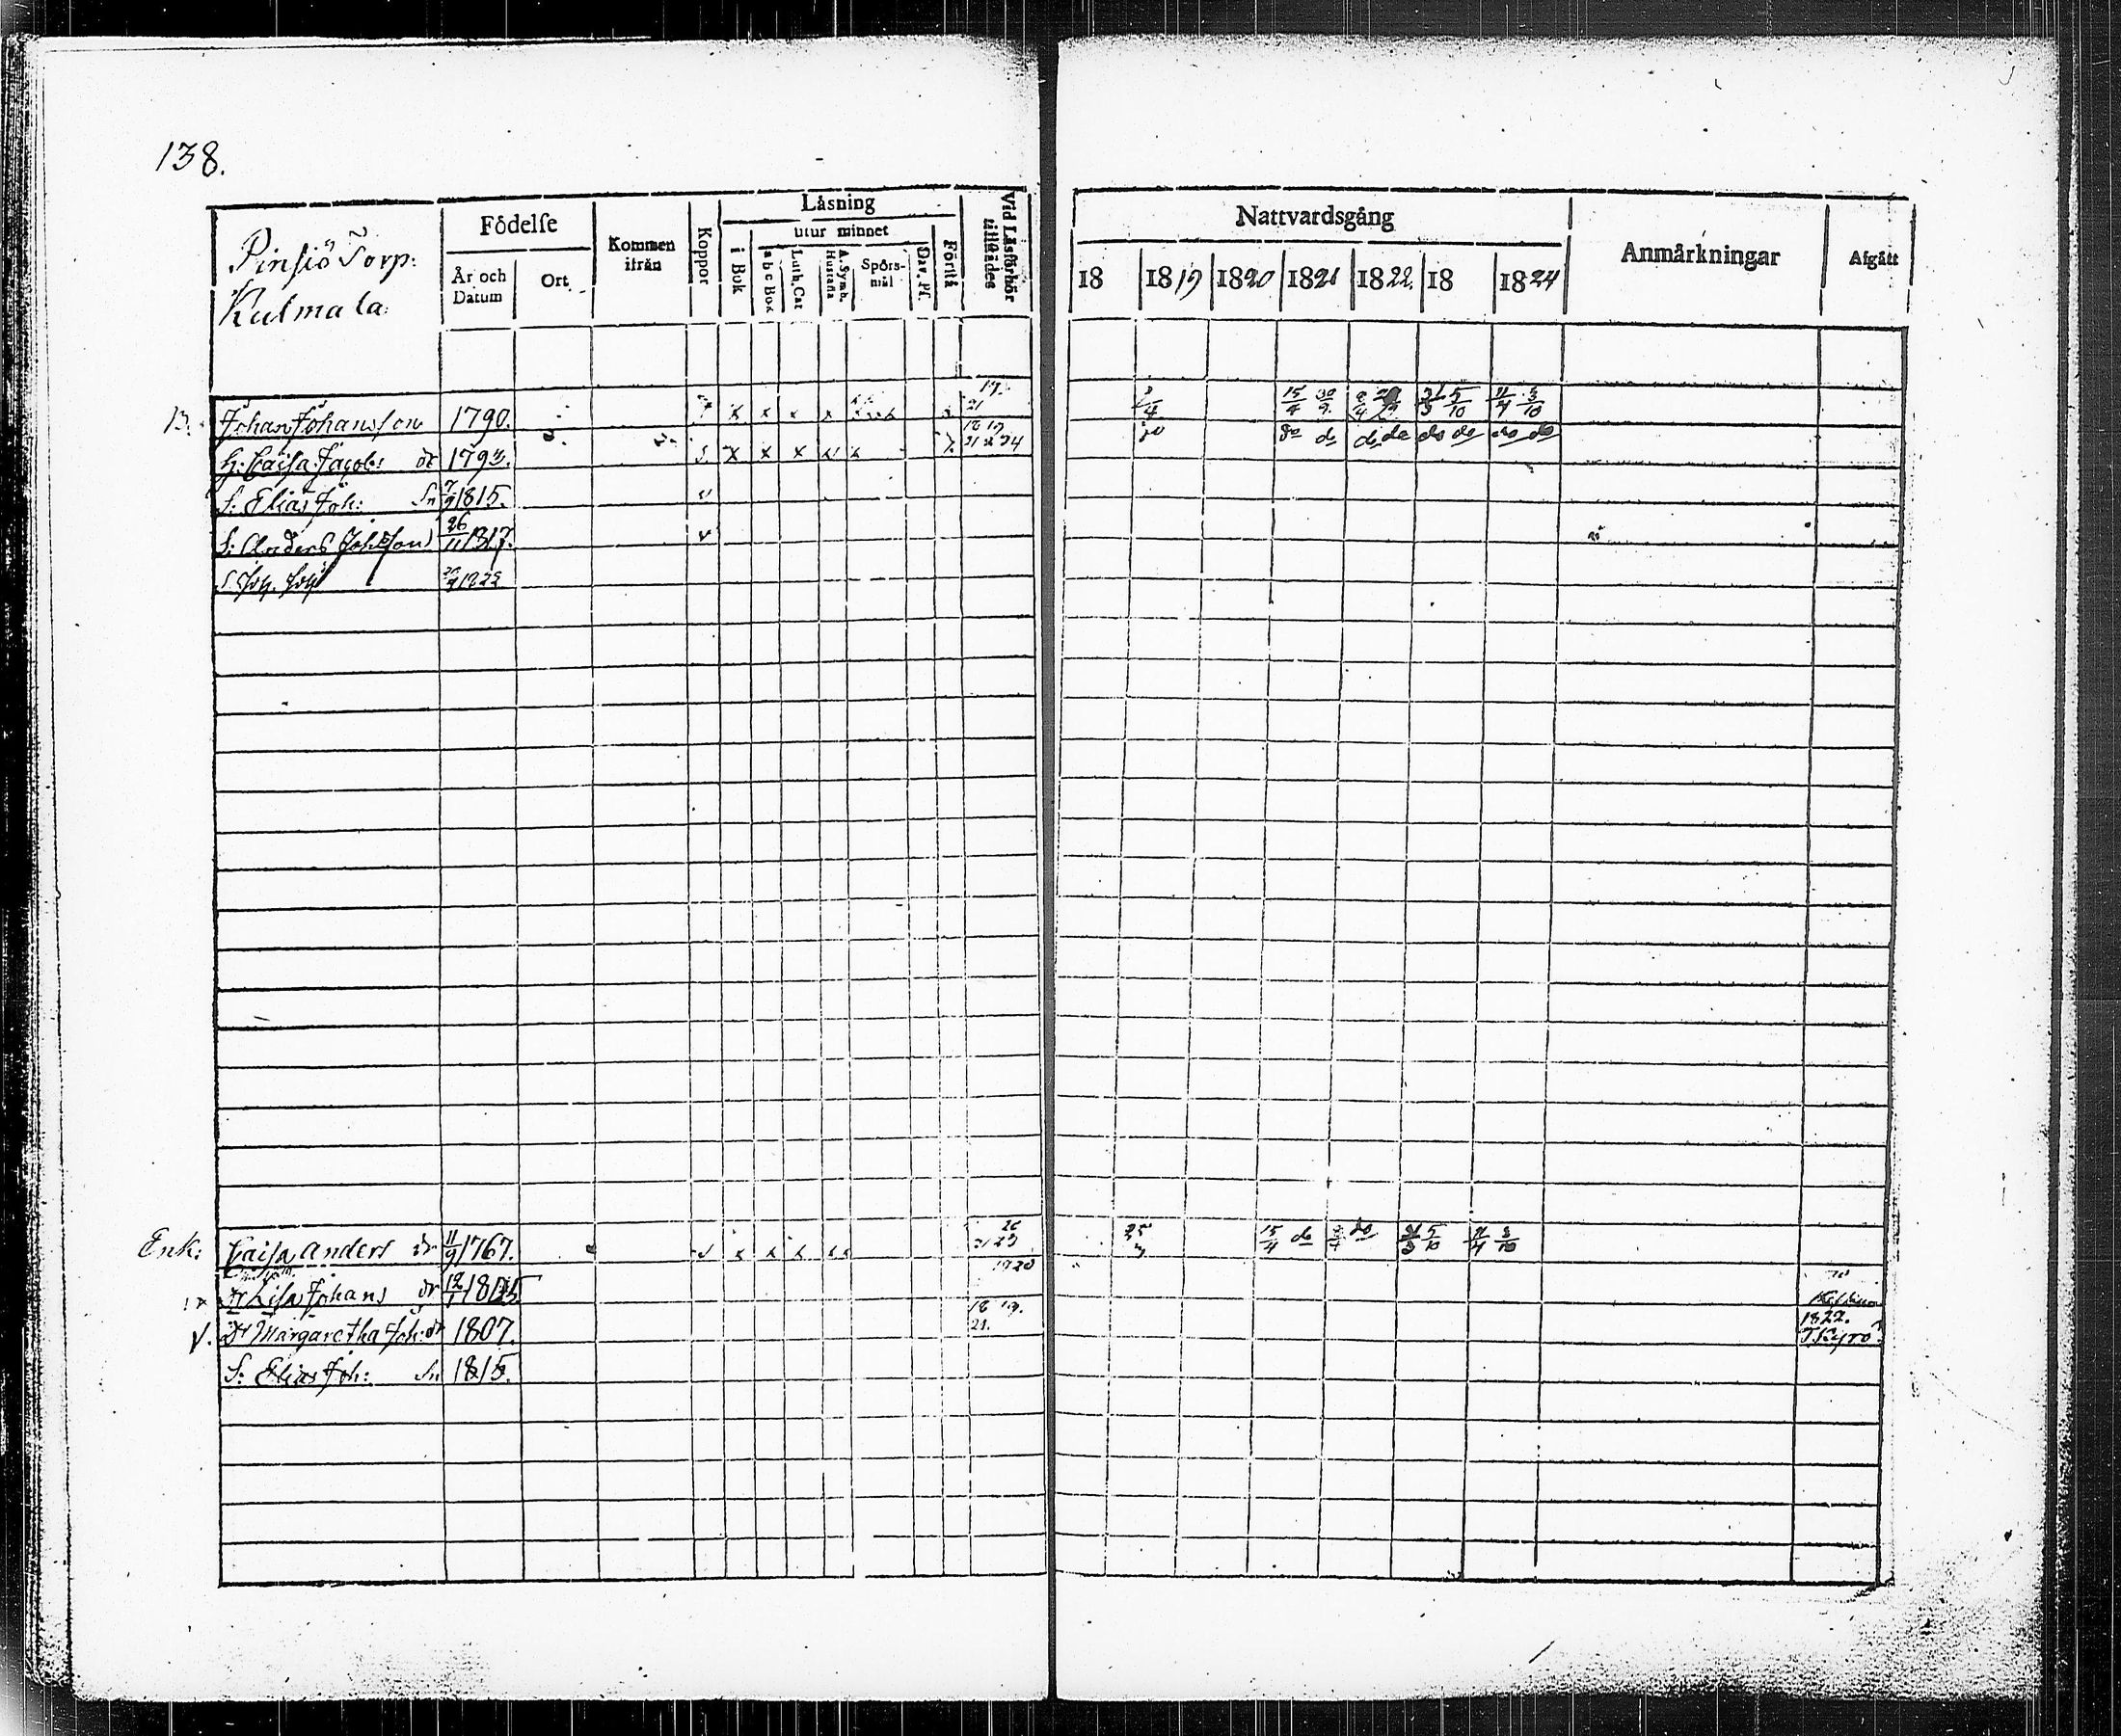 138.
Pinsiö Torp:
Kulmala.
Födelse
År och Datum
Ort
Kommen ifrån
Koppor
Läsning
i Bok
utur minnet
a b c Bok
Luth. Cat
A. Symb. Hustafla
Spörsmål
Dav. Ps.
Förstå
Vid Läsförhör tillstädes
Nattvardsgång
18
1819
1820
1821
1822.
18
1824
Anmärkningar
Afgått
B. Johan Johansson 1790. x x x x 19. 21 15/4 30/9 31/3 5/10 11/4 3/10
H: Caisa Jacobs dr 1793. x x x 18 19 do do do do do do do do
S: Elias Joh: Sn 7/9 1815. v
S: Anders Johsson 26/11 1817. v
S Joh. Joh 1822
Enk: Caisa Anders dr 11/9 1767. v x x x 15/4 do do 31/3 5/10 11/4 3/10
Dr Lisa Johans dr 12/1 1805 1820
Dr Margaretha Joh: dr 1807. 18 19. 21. 1822. T. Kyrö
S: Elias Joh: Sn 1815.